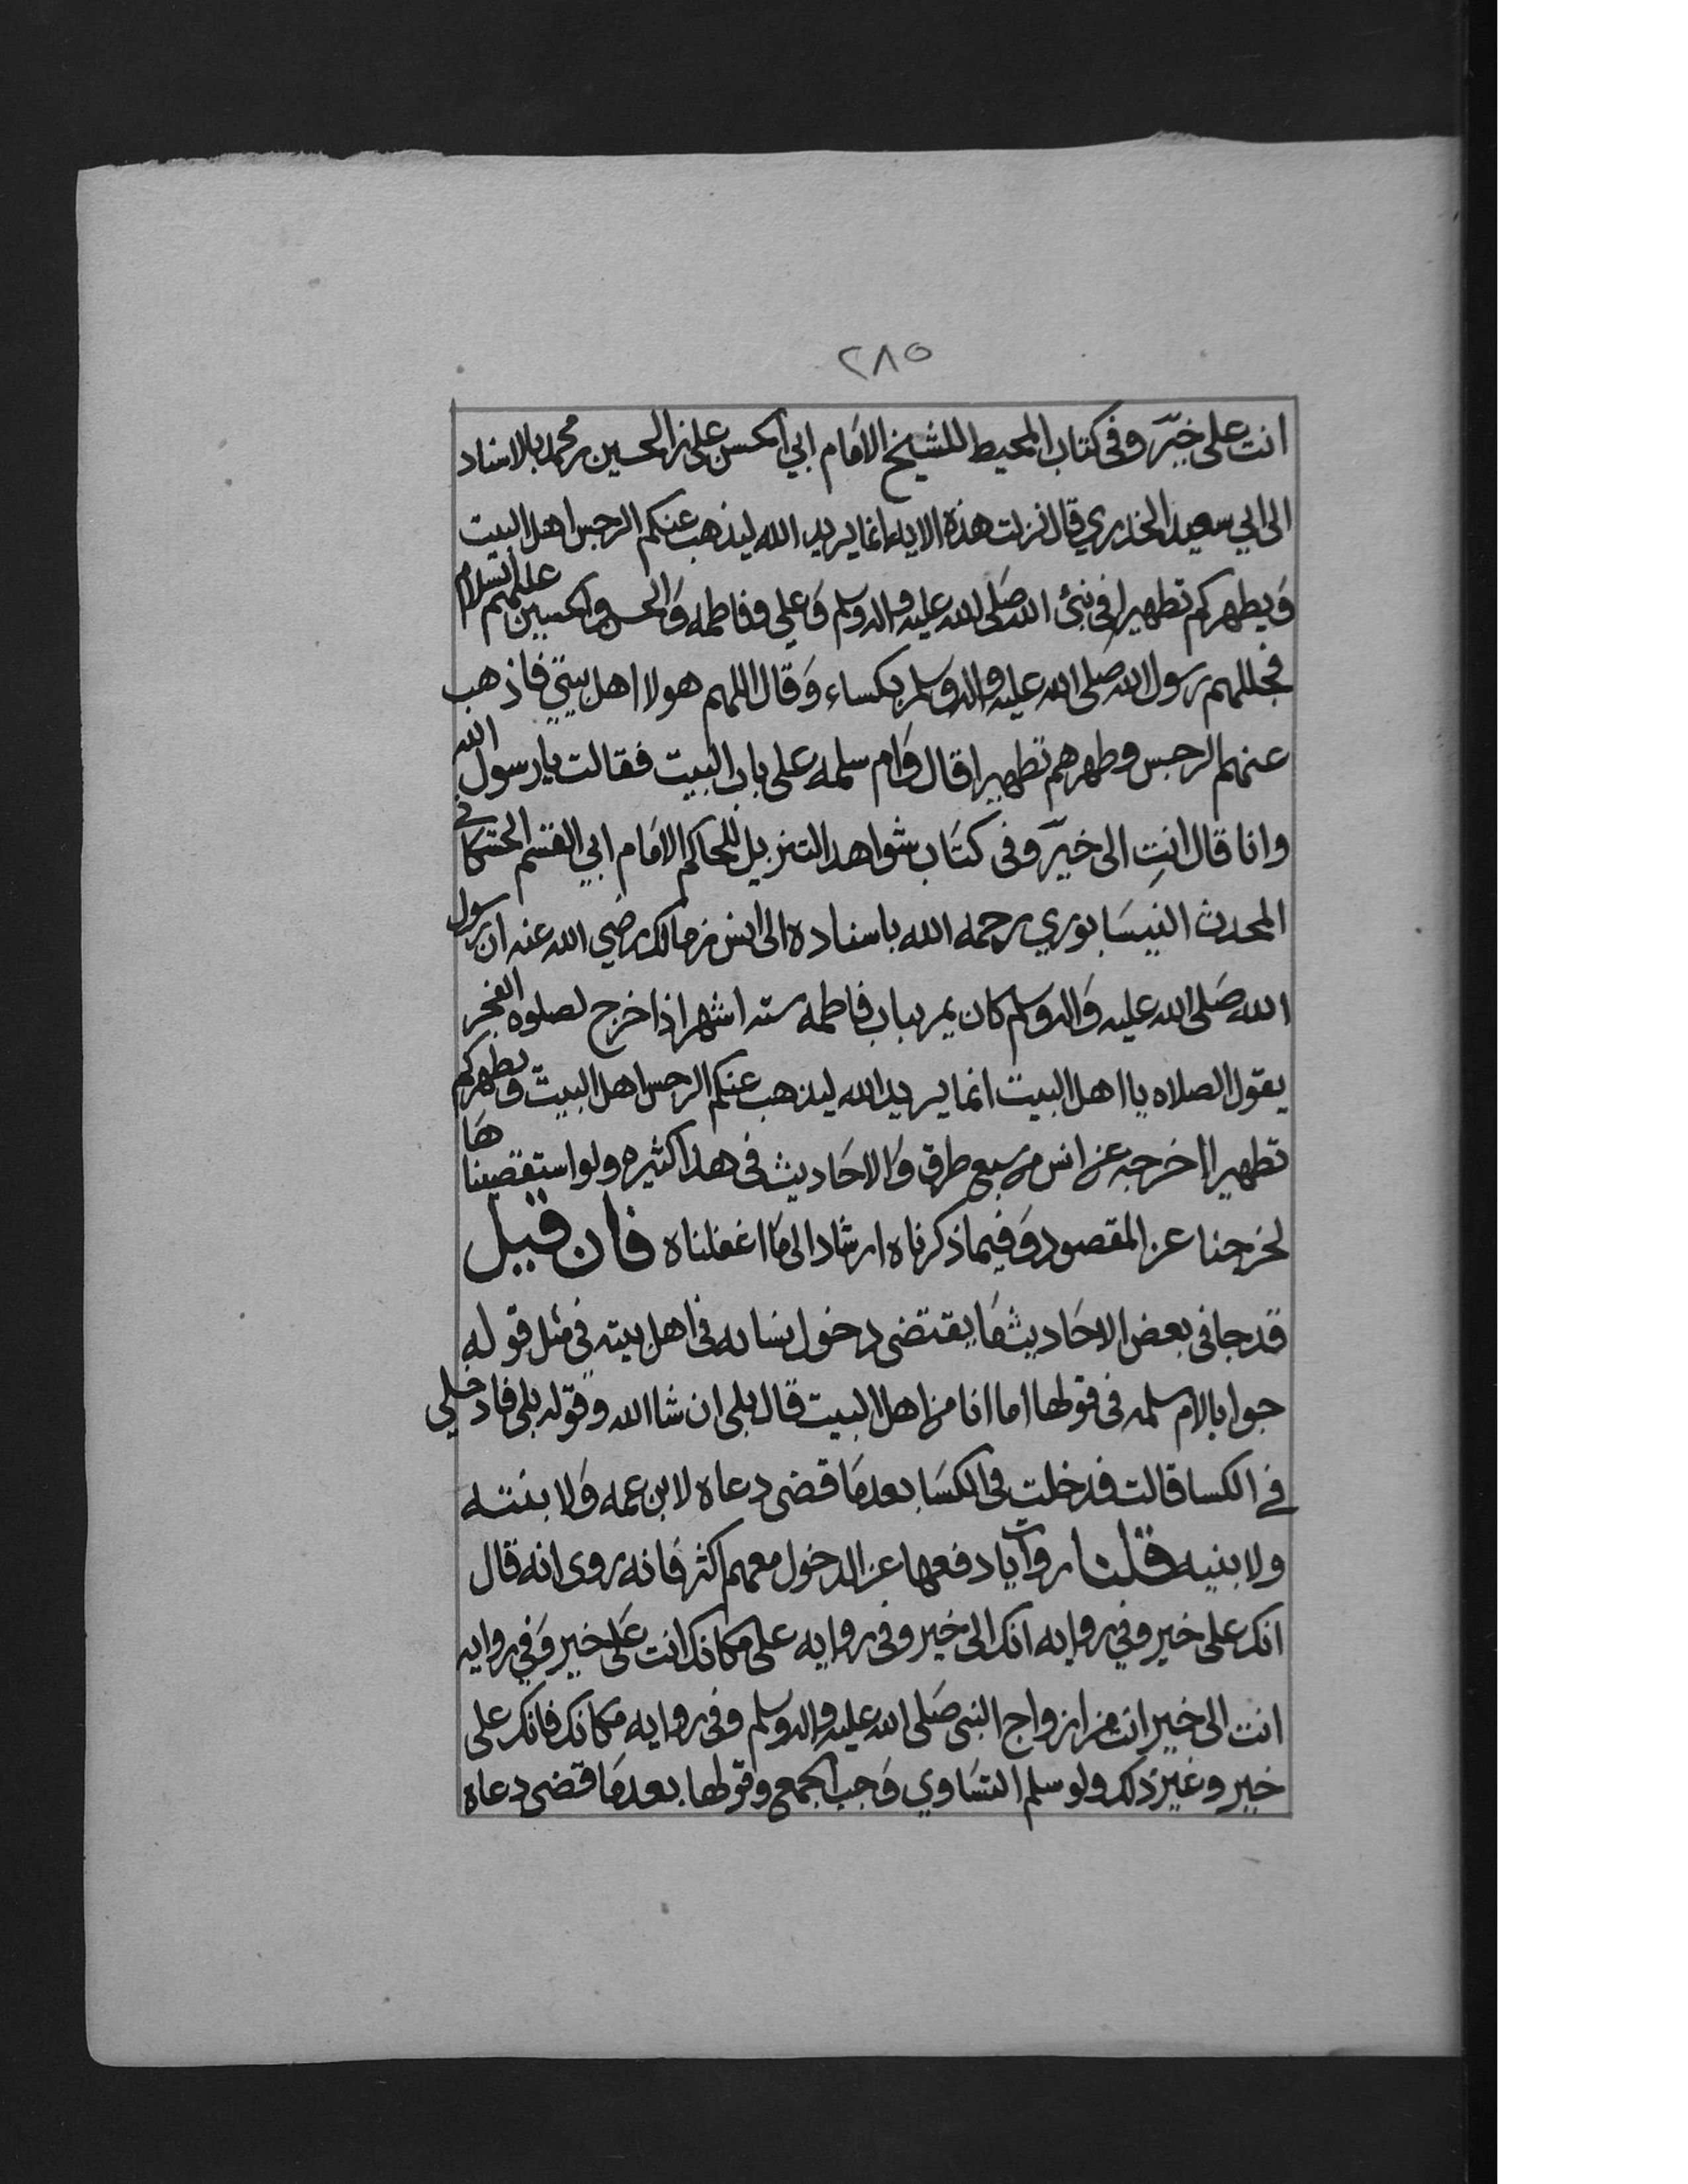 ٢٨٥
انت على خير وفى كتاب المحيط للشيخ الامام ابي الحسن على بن الحسين بن محمد بالاسناد
الى ابي سعيد الخدري قال نزلت هذه الايه انما يريد الله ليذهب عنكم الرجس اهل البيت
ويطهركم تطهيرا فى نبى الله صلى الله عليه واله وسلم وعلى وفاطمه والحسن والحسين عليهم السلام
فجللهم رسول الله صلى الله عليه واله وسلم بكساء وقال اللهم هولا اهل بيتي فاذهب
عنهم الرجس وطهرهم تطهيرا قال وام سلمه على باب البيت فقالت يا رسول الله
وانا قال انتِ الى خير وفى كتاب شواهد التنزيل للحاكم الامام ابي القسم الحسكاني
المحدث النيسابوري رحمه الله باسناده الى انس بن مالك رضي الله عنه ان رسول
الله صلى الله عليه واله وسلم كان يمر بباب فاطمه سته اشهر اذا خرج لصلوه الفجر
يقول الصلاه يا اهل البيت انما يريد الله ليذهب عنكم الرجس اهل البيت ويطهركم
تطهيرا اخرجه عن انس من سبع طرق والاحاديث فى هذا كثيره ولو استقصيناها
لخرجنا عن المقصود وفيما ذكرناه ارشاد الى ما اغفلناه فان قيل
قد جا فى بعض الاحاديث ما يقتضى دخول نسائه فى اهل بيته في مثل قوله
جوابا لام سلمه فى قولها اما انا من اهل البيت قال بلى ان شا الله وقوله بلى فادخلي
في الكسا قالت فدخلت فى الكسا بعد ما قضى دعاه لابن عمه ولابنته
ولابنيه قلنا روايات دفعها عن الدخول معهم اكثر فانه روى انه قال
انك على خير وفي روايه انك الى خير وفى روايه على مكانك انت على خير وفي روايه
انت الى خير انت من ازواج النبى صلى الله عليه واله وسلم وفى روايه مكانك فانك على
خير وغير ذلك ولو سلم التساوي وجب الجمع وقولها بعد ما قضى دعاه